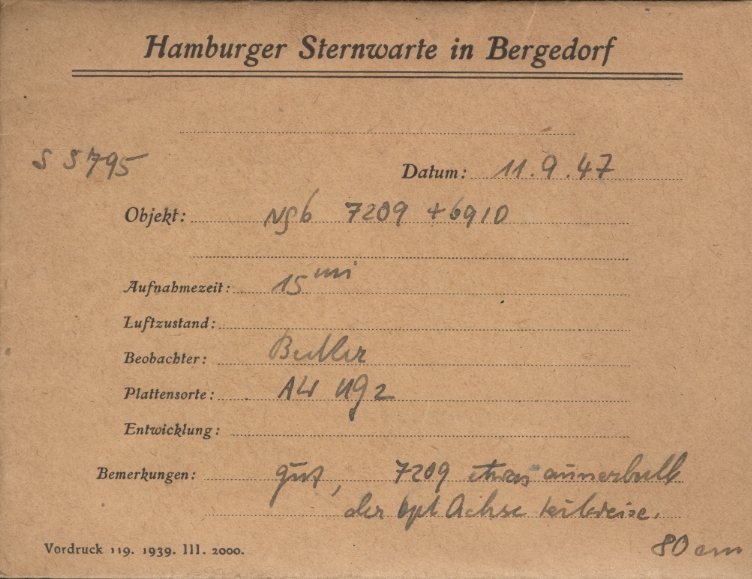 Hamburger Sternwarte in Bergedorf
S 5795
Datum: 11.9.47
Objekt: NGC 7209 + 6910
Aufnahmezeit: 15 min
Luftzustand:
Beobachter:
Plattensorte:
Entwicklung:
Bemerkungen: gut, 7209 etwas ausserhalb
der opt Achse teilweise.
Vordruck 119. 1939. III. 2000.
80 cm